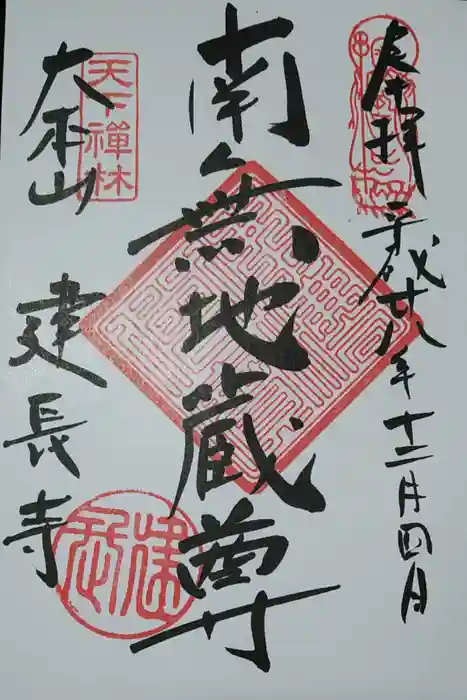 奉拝 平成廿八年十二月四日
南無地蔵尊
天下禅林
大本山 建長寺